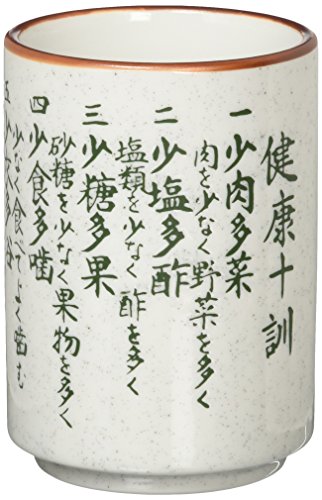 健康十訓
一 少肉多菜
肉を少なく野菜を多く
二 少塩多酢
塩類を少なく酢を多く
三 少糖多果
砂糖を少なく果物を多く
四 少食多噛
少なく食べてよく噛む
五 少衣多浴